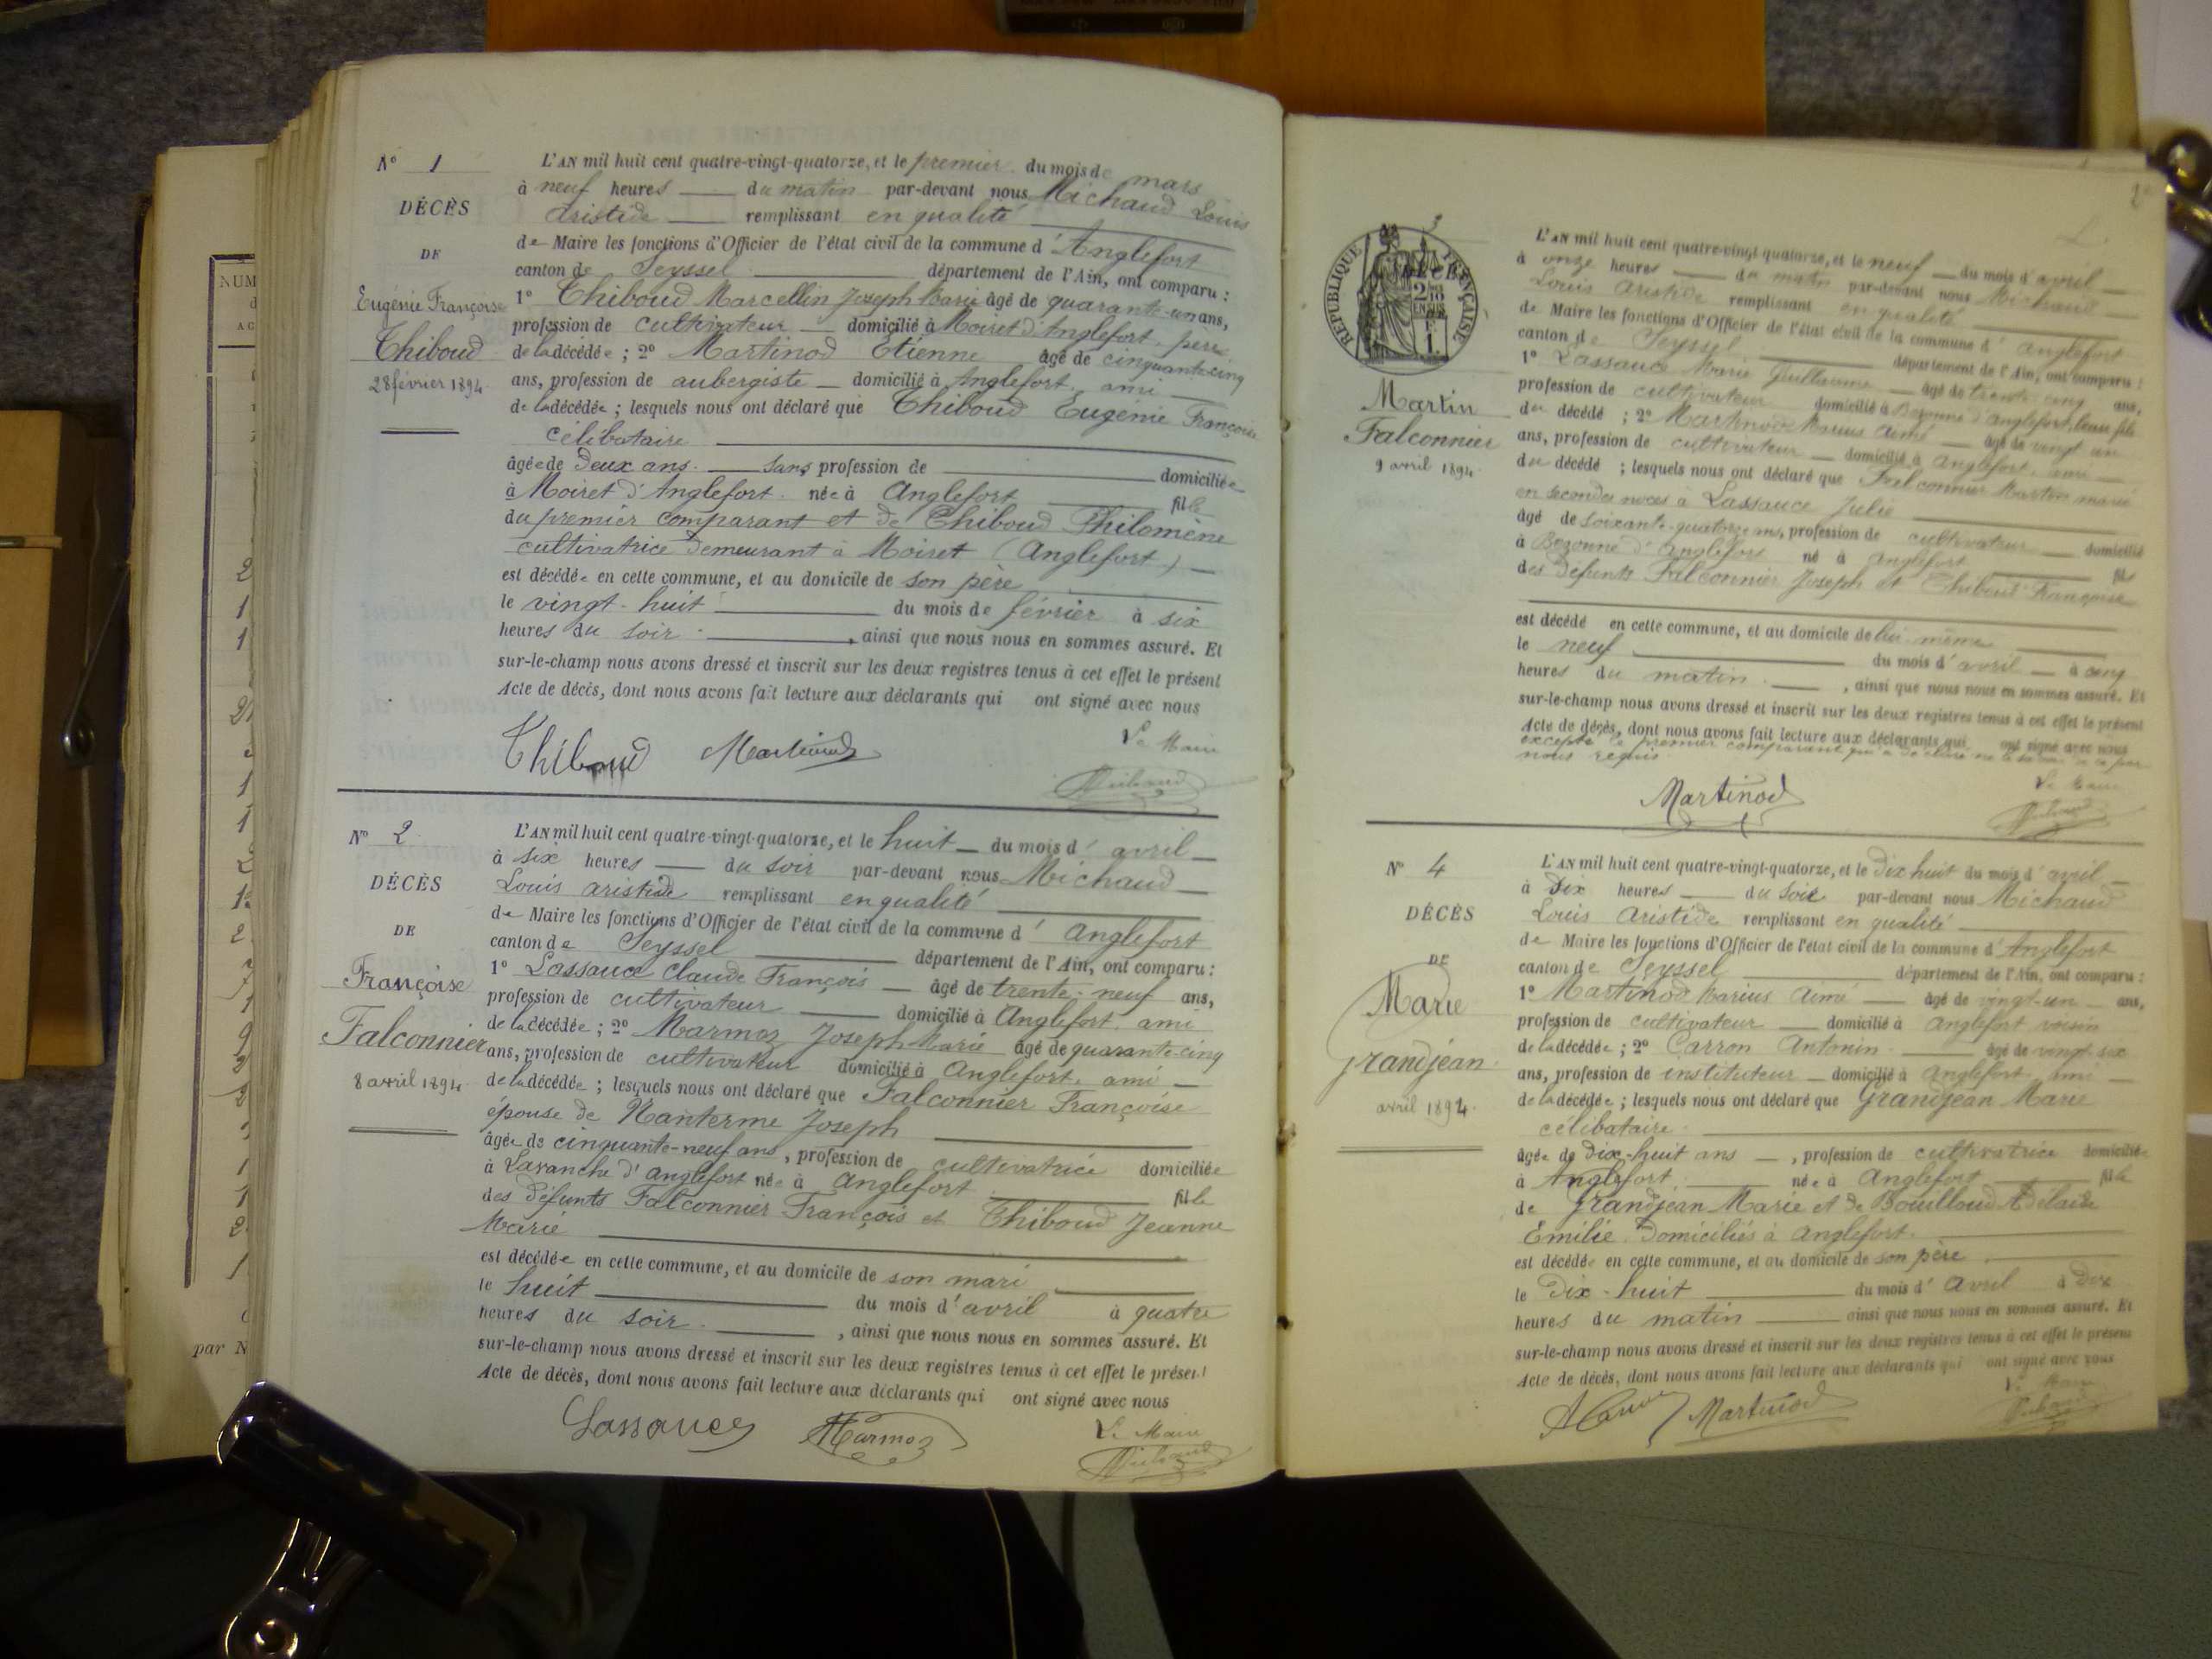 N° 1
DÉCÈS
DE
Eugénie Françoise
Thiboud
28 février 1894
L'AN mil huit cent quatre-vingt-quatorze, et le premier du mois de mars
à neuf heures du matin par-devant nous Michaud Louis
Aristide remplissant en qualité
de Maire les fonctions d'Officier de l'état civil de la commune d'Anglefort
canton de Seyssel département de l'Ain, ont comparu :
1° Thiboud Marcellin Joseph Marie âgé de quarante-un ans,
profession de cultivateur domicilié à Moiret d'Anglefort, père
de la décédée ; 2° Martinod Etienne âgé de cinquante-cinq
ans, profession de aubergiste domicilié à Anglefort, ami
de la décédée ; lesquels nous ont déclaré que Thiboud Eugénie Françoise
célibataire
âgée de deux ans. sans profession de domiciliée
à Moiret d'Anglefort. née à Anglefort fille
du premier comparant et de Thiboud Philomène
cultivatrice demeurant à Moiret (Anglefort)
est décédée en cette commune, et au domicile de son père
le vingt-huit du mois de février à six
heures du soir, ainsi que nous nous en sommes assuré. Et
sur-le-champ nous avons dressé et inscrit sur les deux registres tenus à cet effet le présent
Acte de décès, dont nous avons fait lecture aux déclarants qui ont signé avec nous
Le Maire
Thiboud Martinod Michaud
N° 2
DÉCÈS
DE
Françoise
Falconnier
8 avril 1894
L'AN mil huit cent quatre-vingt-quatorze, et le huit du mois d'avril
à six heures du soir par-devant nous Michaud
Louis aristide remplissant en qualité
de Maire les fonctions d'Officier de l'état civil de la commune d'Anglefort
canton de Seyssel département de l'Ain, ont comparu :
1° Lassauce Claude François âgé de trente-neuf ans,
profession de cultivateur domicilié à Anglefort, ami
de la décédée ; 2° Marmoz Joseph Marie âgé de quarante-cinq
ans, profession de cultivateur domicilié à Anglefort, ami
de la décédée ; lesquels nous ont déclaré que Falconnier Françoise
épouse de Nanterme Joseph
âgée de cinquante-neuf ans, profession de cultivatrice domiciliée
à Lavanche d'anglefort née à Anglefort fille
des défunts Falconnier François et Thiboud Jeanne
Marie
est décédée en cette commune, et au domicile de son mari
le huit du mois d'avril à quatre
heures du soir, ainsi que nous nous en sommes assuré. Et
sur-le-champ nous avons dressé et inscrit sur les deux registres tenus à cet effet le présent
Acte de décès, dont nous avons fait lecture aux déclarants qui ont signé avec nous
Le Maire
Lassauce Marmoz Michaud
2e
3
RÉPUBLIQUE FRANÇAISE
Martin
Falconnier
9 avril 1894
L'AN mil huit cent quatre-vingt-quatorze, et le neuf du mois d'avril
à onze heures du matin par-devant nous Michaud
Louis Aristide remplissant en qualité
de Maire les fonctions d'Officier de l'état civil de la commune d'Anglefort
canton de Seyssel département de l'Ain, ont comparu :
1° Lassauce Marie Guillaume âgé de trente-cinq ans,
profession de cultivateur domicilié à Bezonne d'Anglefort, beau fils
du décédé ; 2° Martinod Marius Aimé âgé de vingt un
ans, profession de cultivateur domicilié à Anglefort, ami
du décédé ; lesquels nous ont déclaré que Falconnier Martin marié
en secondes noces à Lassauce Julie
âgé de soixante-quatorze ans, profession de cultivateur domicilié
à Bezonne d'Anglefort né à Anglefort fils
des défunts Falconnier Joseph et Thiboud Françoise
est décédé en cette commune, et au domicile de lui-même
le neuf du mois d'avril à cinq
heures du matin, ainsi que nous nous en sommes assuré. Et
sur-le-champ nous avons dressé et inscrit sur les deux registres tenus à cet effet le présent
Acte de décès, dont nous avons fait lecture aux déclarants qui ont signé avec nous
excepté le premier comparant qui a déclaré ne le savoir de ce par
nous requis
Le Maire
Martinod Michaud
N° 4
DÉCÈS
DE
Marie
Grandjean
avril 1894
L'AN mil huit cent quatre-vingt-quatorze, et le dix huit du mois d'avril
à dix heures du soir par-devant nous Michaud
Louis Aristide remplissant en qualité
de Maire les fonctions d'Officier de l'état civil de la commune d'Anglefort
canton de Seyssel département de l'Ain, ont comparu :
1° Martinod Marius Aimé âgé de vingt-un ans,
profession de cultivateur domicilié à Anglefort voisin
de la décédée ; 2° Carron Antonin âgé de vingt-six
ans, profession de instituteur domicilié à Anglefort ami
de la décédée ; lesquels nous ont déclaré que Grandjean Marie
célibataire
âgée de dix-huit ans, profession de cultivatrice domiciliée
à Anglefort née à Anglefort fille
de Grandjean Marie et de Bouilloud Adelaïde
Emilie domiciliés à Anglefort.
est décédée en cette commune, et au domicile de son père
le dix-huit du mois d'avril à dix
heures du matin ainsi que nous nous en sommes assuré. Et
sur-le-champ nous avons dressé et inscrit sur les deux registres tenus à cet effet le présent
Acte de décès, dont nous avons fait lecture aux déclarants qui ont signé avec nous
Le Maire
A Carron Martinod Michaud